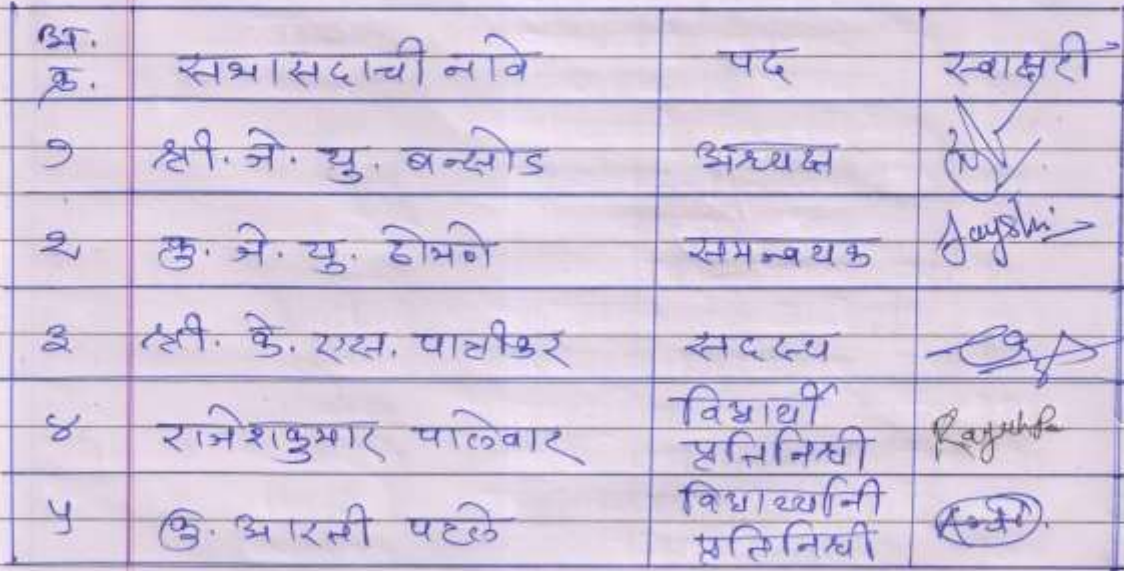 अ.
क्र. सभासदाची नावे पद स्वाक्षरी
१ श्री. जे. यु. बन्सोड अध्यक्ष
२ कु. जे. यु. होमने समन्वयक Jayshri
३ श्री. के. एस. पात्रीकर सदस्य
४ राजेशकुमार पालेवार विद्यार्थी
प्रतिनिधी
५ कु. आरती पहले विद्यार्थ्यांनी
प्रतिनिधी